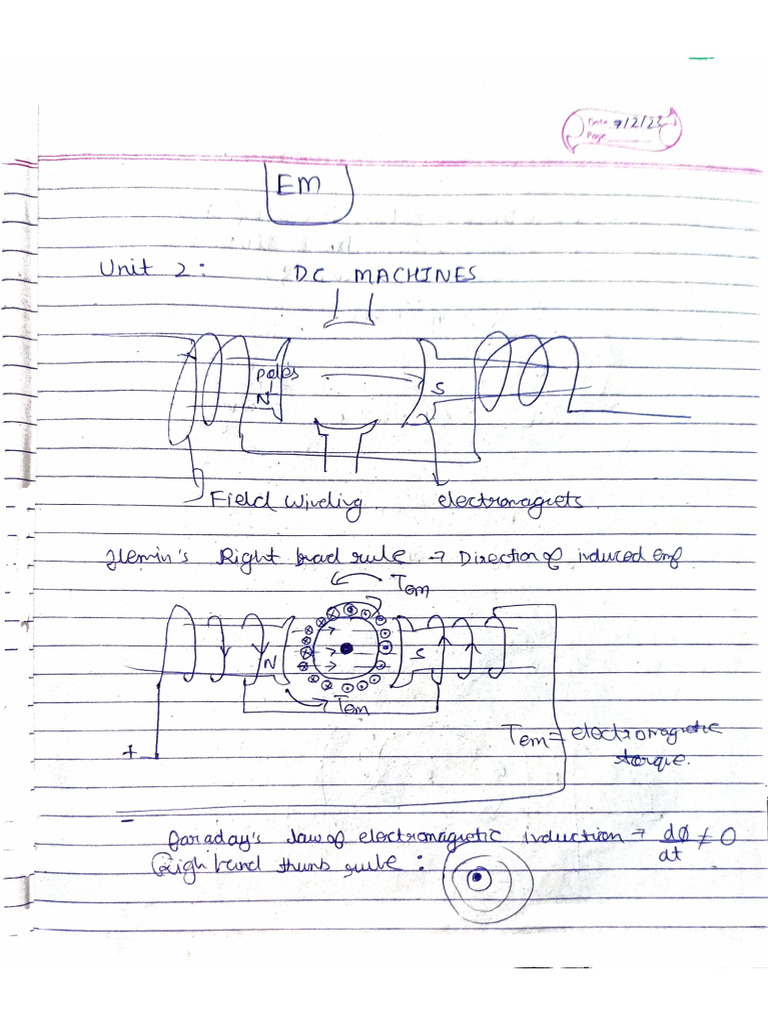 Date 9/2/23
Page
EM
Unit 2 : DC MACHINES
poles
N
S
Field Winding electromagnets
Flemin's Right hand rule → Direction of induced emf
Tem
N
S
Tem
Tem = electromagnetic
torque.
+
-
faraday's law of electromagnetic induction → dØ/dt ≠ 0
Righ hand thumb rule :